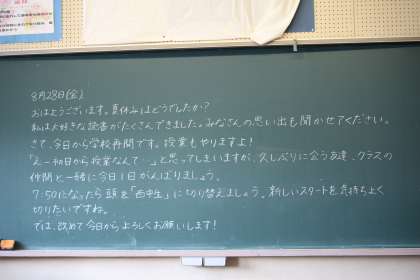 8月28日(金)
おはようございます。夏休みはどうでしたか？
私は大好きな読書がたくさんできました。みなさんの思い出も聞かせてください。
さて、今日から学校再開です。授業もやりますよ！
「えー初日から授業なんて…。」と思ってしまいますが、久しぶりに会う友達、クラスの
仲間と一緒に今日1日がんばりましょう。
7:50になったら頭を「西中生」に切り替えましょう。新しいスタートを気持ちよく
切りたいですね。
では、改めて今日からよろしくお願いします！